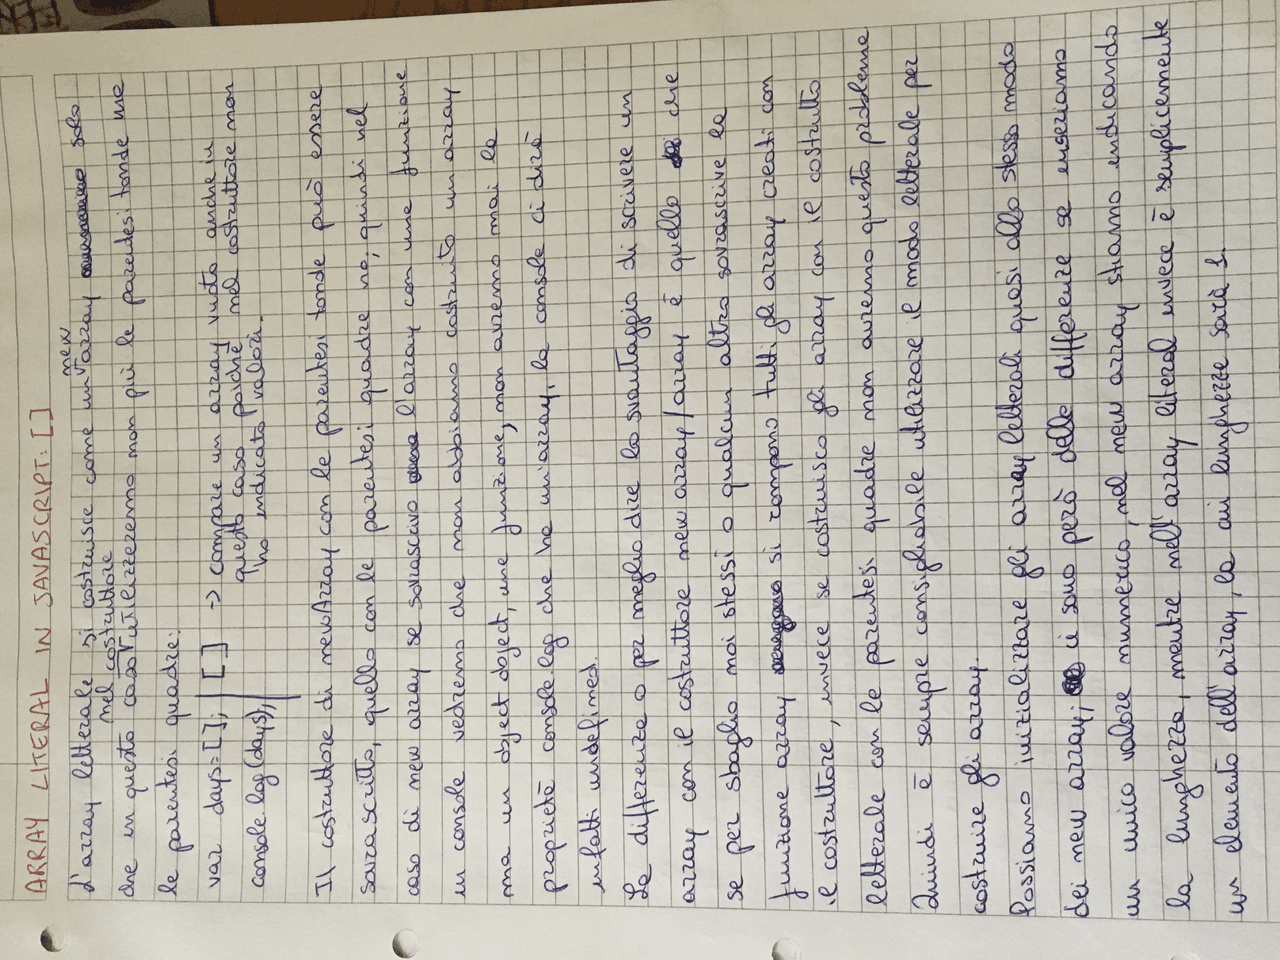 ARRAY LITERAL IN JAVASCRIPT: []
L'array letterale si costruisce come un new array solo
che in questo caso nel costruttore utilizzeremo non più le parentesi tonde ma
le parentesi quadre:
var days=[]; | [] -> compare un array vuoto anche in
questo caso poiché nel costruttore non
console.log(days); | ho indicato valori.
Il costruttore di newArray con le parentesi tonde può essere
sovrascritto, quello con le parentesi quadre no, quindi nel
caso di new array se sovrascrivo l'array con una funzione
in console vedremo che non abbiamo costruito un array
ma un object object, una funzione, non avremo mai la
proprietà console.log che ha un'array, la console ci dirà
infatti undefined.
La differenza o per meglio dire lo svantaggio di scrivere un
array con il costruttore new array/array è quello che
se per sbaglio noi stessi o qualcun altro sovrascrive la
funzione array si rompono tutti gli array creati con
il costruttore, invece se costruisco gli array con il costrutto
letterale con le parentesi quadre non avremo questo problema
Quindi è sempre consigliabile utilizzare il modo letterale per
costruire gli array.
Possiamo inizializzare gli array letterali quasi allo stesso modo
dei new array; ci sono però delle differenze se inseriamo
un unico valore numerico, nel new array stiamo indicando
la lunghezza, mentre nell'array literal invece è semplicemente
un elemento dell'array, la cui lunghezza sarà 1.